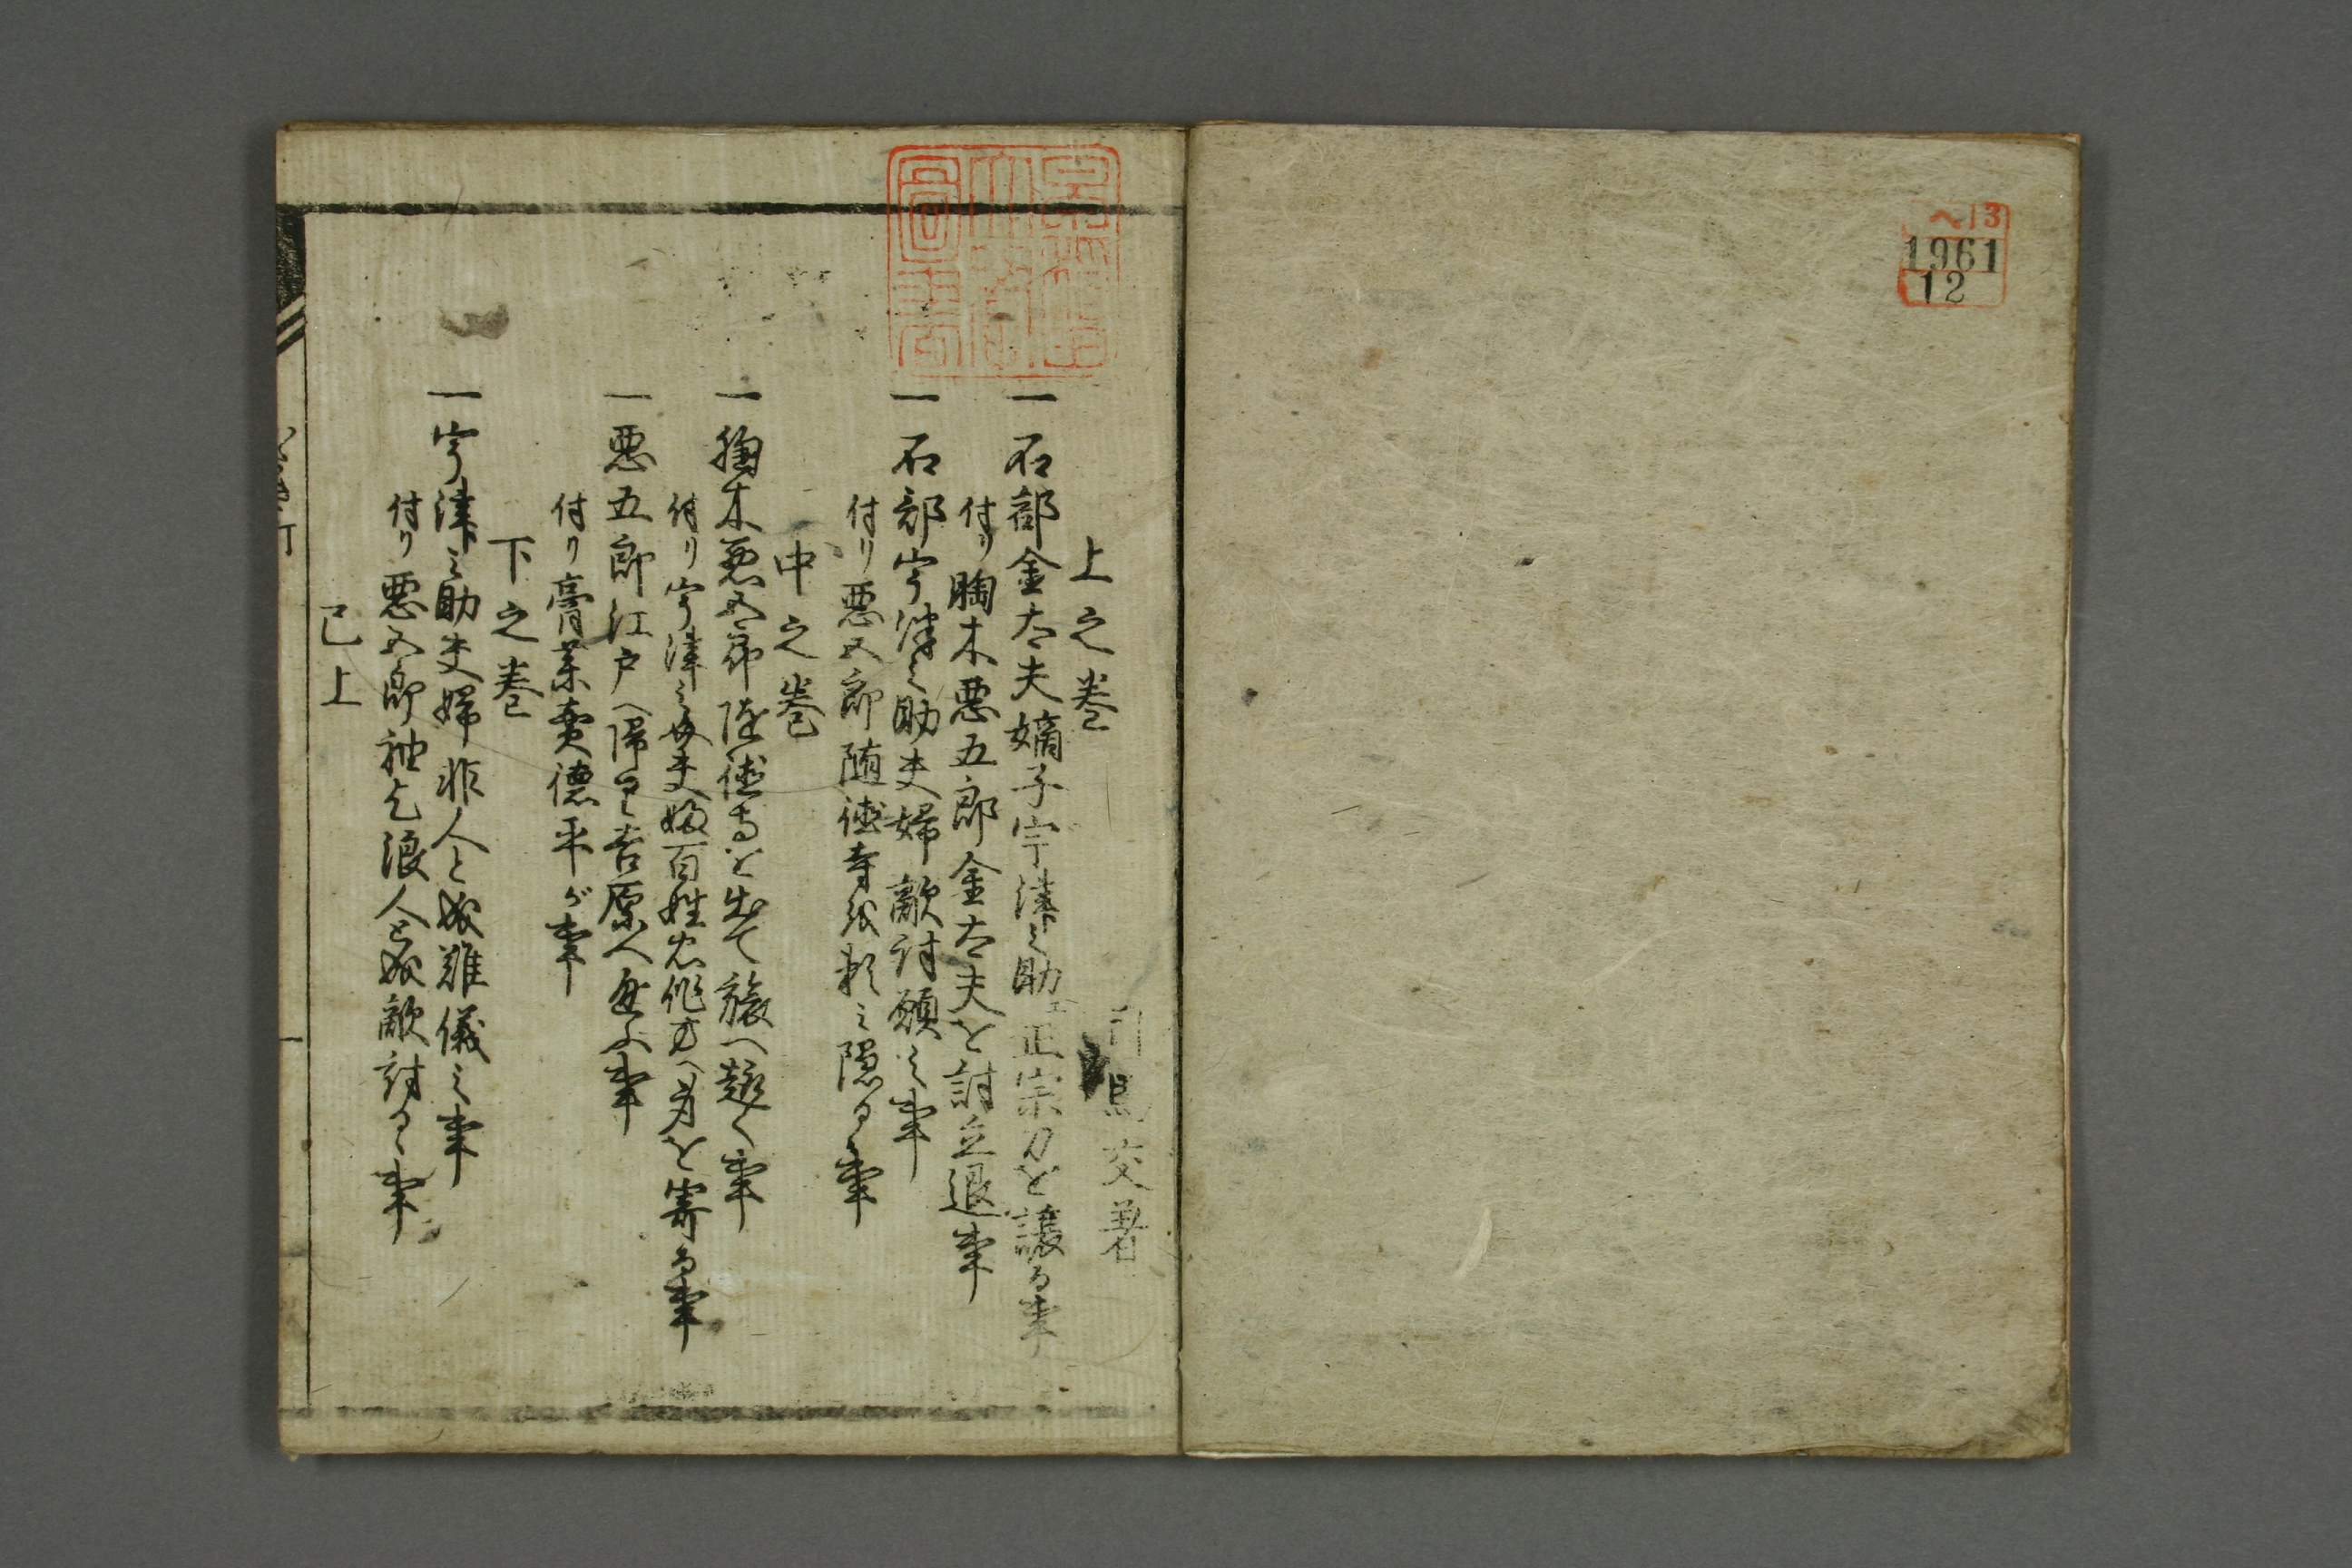 へ13
1961
12
馬交著
上之巻
一石部金太夫嫡子宇津之助エ正宗刀を譲る事
付り胸木悪五郎金太夫を討立退事
一石部宇津之助夫婦敵討願之事
付り悪五郎随徳寺頼ミ隠るゝ事
中之巻
一胸木悪五郎随徳寺を出て旅へ趣く事
付り宇津之助夫婦百姓忠作方へ身を寄る事
一悪五郎江戸へ帰り吉原へ遊ふ事
付り膏薬売徳平が事
下之巻
一宇津之助夫婦非人と成難儀之事
付り悪五郎袖乞浪人と成敵討るゝ事
已上
一